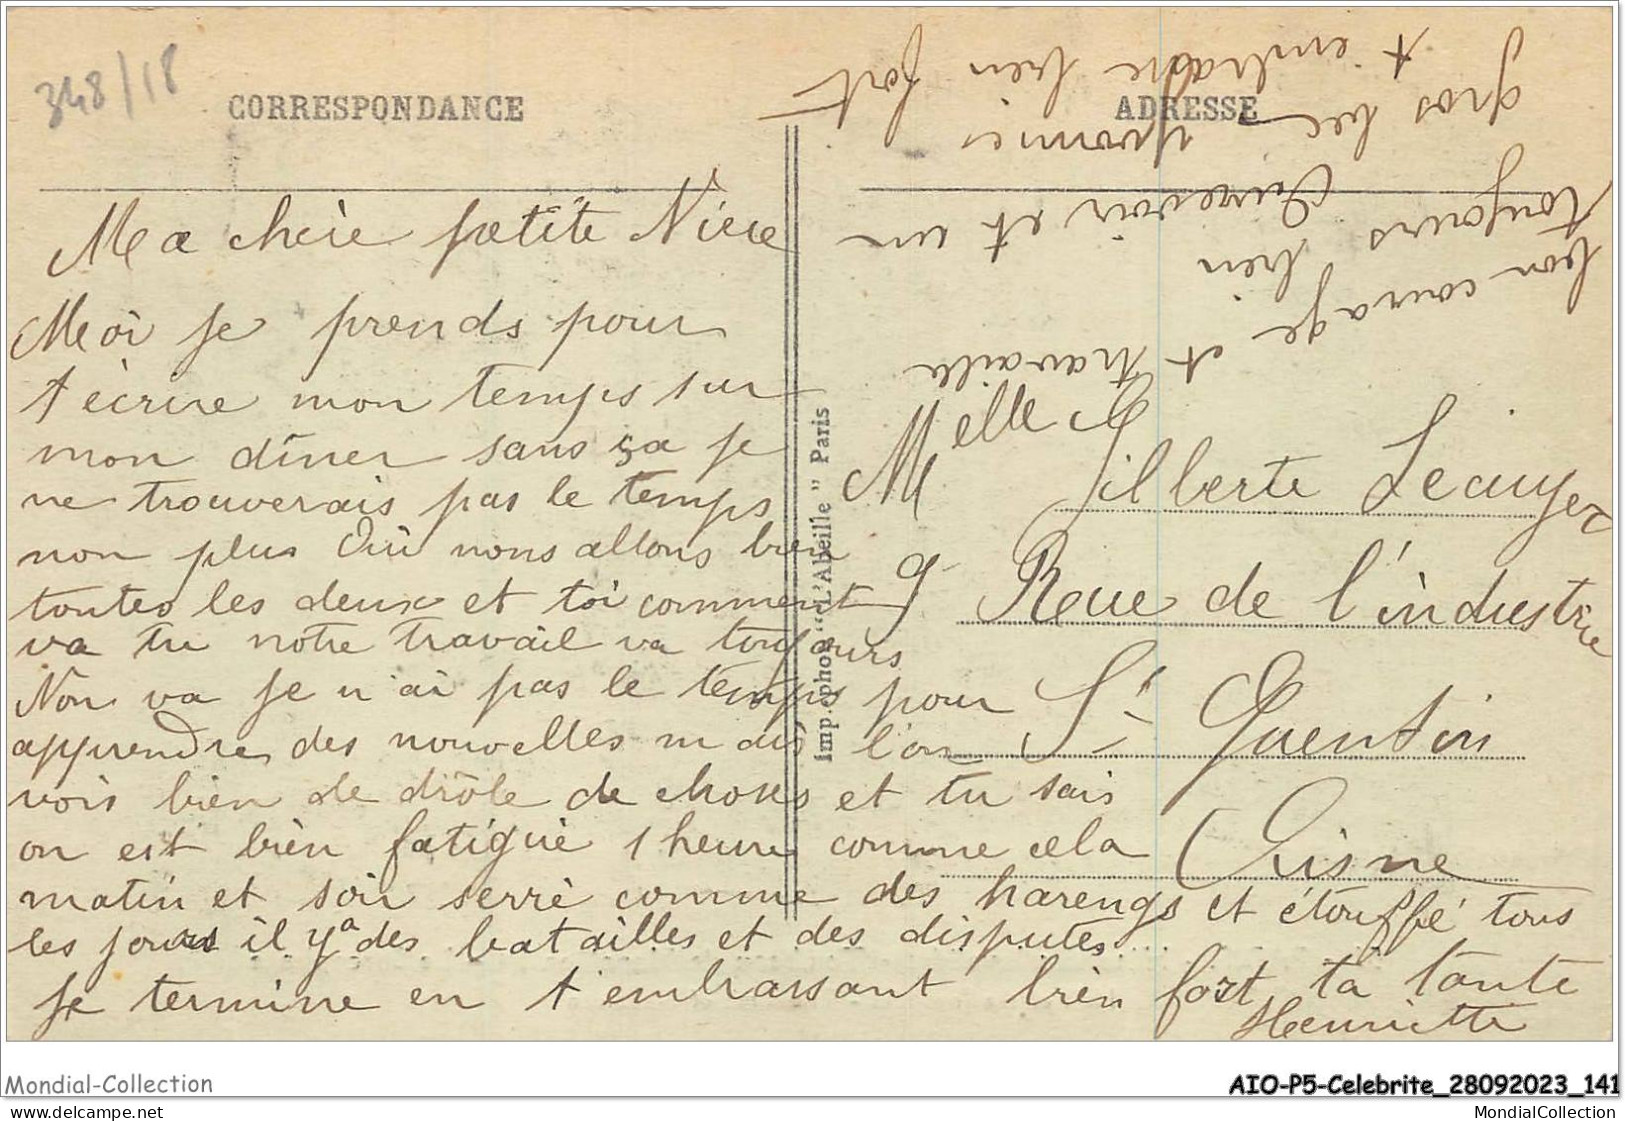 348/18
CORRESPONDANCE
ADRESSE
Ma chère petite Nièce
Moi je prends pour
t'écrire mon temps sur
mon dîner sans ça je
ne trouverais pas le temps
non plus Oui nous allons bien
toutes les deux et toi comment
va tu notre travail va toujours
Non va je n'ai pas le temps pour
apprendre des nouvelles mais l'on
vois bien de drôle de choses et tu sais
on est bien fatigué 1 heure comme cela
matin et soir serré comme des harengs et étouffé tous
les jours il y a des batailles et des disputes...
Je termine en t'embrassant bien fort, ta tante
Henriette
Imp.-phot. "L'Abeille" Paris
Melle Gilberte Lecuyer
9 Rue de l'industrie
St Quentin
Aisne
bon courage et travaille
toujours bien
Aurevoir et un
gros bec Yvonne
t'embrasse bien fort
Mondial-Collection
delcampe.net
AIO-P5-Celebrite_28092023_141
MondialCollection